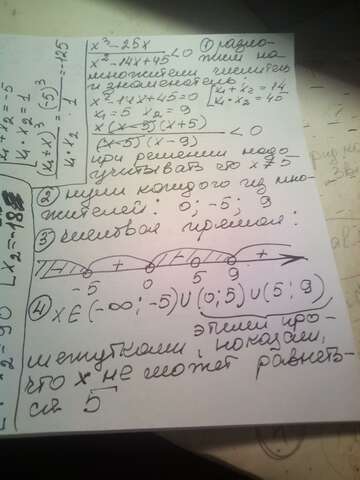 x³-25x / x²-14x+45 < 0 ① разло-
жим на
множители числитель
и знаменатель:
x²-14x+45=0 [x₁+x₂=14
x₁=5 x₂=9 [x₁·x₂=45
x(x-5)(x+5) / (x-5)(x-9) < 0
при решении надо
учитывать что x≠5
② нули каждого из мно-
жителей: 0; -5; 9
③ числовая прямая:
- + - - +
-5 0 5 9
④ x∈(-∞;-5)∪(0;5)∪(5;9)
этими про-
межутками, показали,
что x не может равнять-
ся 5
x₁+x₂=-5
x₁·x₂=1
(5)³
=-125